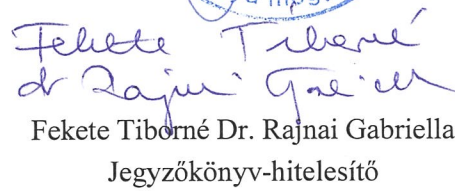 Fekete Tiborné
dr Rajnai Gabriella
Fekete Tiborné Dr. Rajnai Gabriella
Jegyzőkönyv-hitelesítő